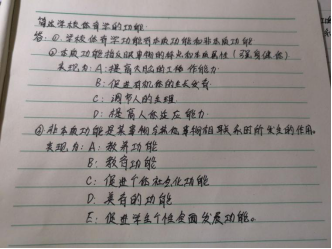 简述学校体育学的功能
答：①学校体育学功能有本质功能和非本质功能
①本质功能指反映事物的特点和本质属性（强身健体）
表现为：A：提高大脑的工作能力
B：促进有机体的生长发育
C：调节人的心理
D：提高人体适应能力
②非本质功能是某事物与其他事物相联系时所发生的作用。
表现为：A：教养功能
B：教育功能
C：促进个体社会化功能
D：美育的功能
E：促进学生个性全面发展功能。